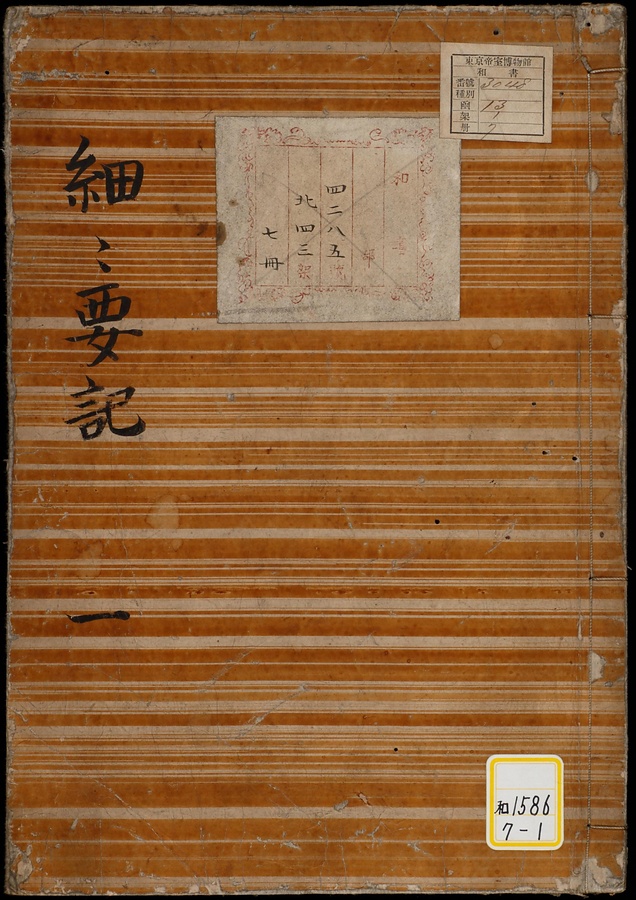 細〻要記 一
東京帝室博物館
和書
番號 3048
種別
函 13
架 1
冊 7
和書
部
四二八五號
北四三架
七冊
和1586
7-1